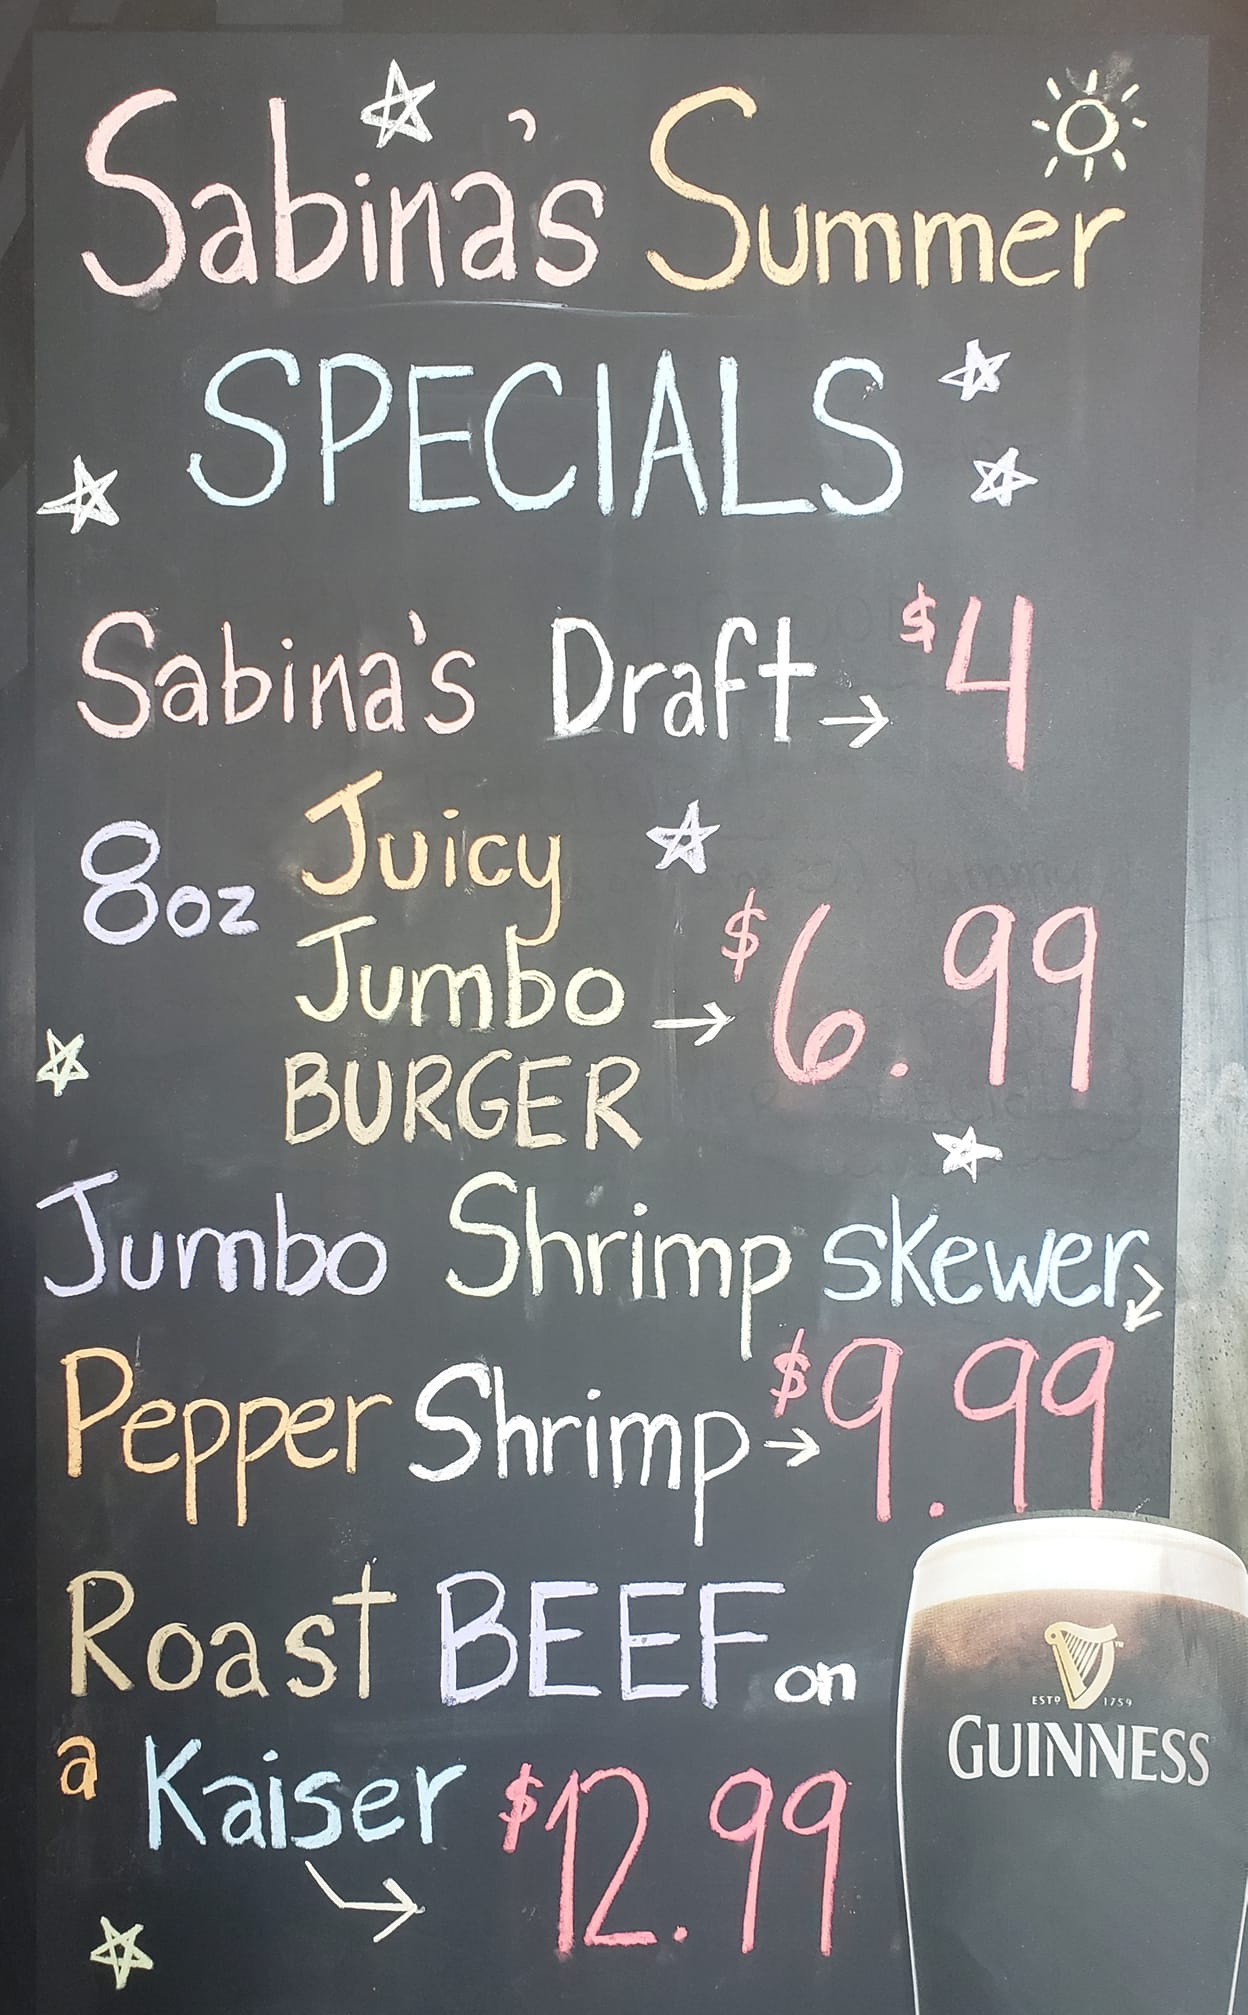 Sabina's Summer
SPECIALS
Sabina's Draft → $4
8oz Juicy
Jumbo → $6.99
BURGER
Jumbo Shrimp skewer
Pepper Shrimp → $9.99
Roast BEEF on
a Kaiser $12.99
ESTD 1759
GUINNESS